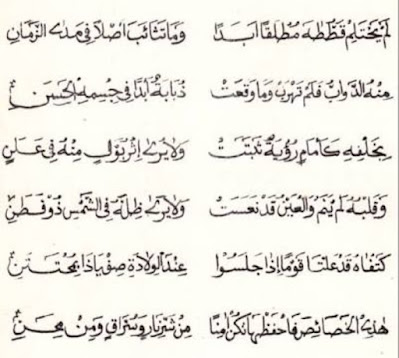 لَمْ يَحْتَلِمْ قَطُّ طٰهَ مُطْلَقًا اَبَدًا وَمَا تَثَائَبَ اَصْلًا فِي مَدَى الزَّمَانِ
مِنْهُ الدَّوَابُّ فَلَمْ تَهْرُبْ وَمَا وَقَعَتْ ذُبَابَةٌ اَبَدًا فِي جِسْمِهِ الْحَسَنِ
بِخَلْفِهِ كَاَمَامٍ رُؤْيَةٌ ثَبَتَتْ وَلَا يُرٰى اِثْرُ بَوْلٍ مِنْهُ فِي عَلَنٍ
وَقَلْبُهُ لَمْ يَنَمْ وَالْعَيْنُ قَدْ نَعَسَتْ وَلَا يَرٰى ظِلَّهُ فِي الشَّمْسِ ذُوْ فَطَنٍ
كَتْفَاهُ قَدْ عَلَتَا قَوْمًا اِذَا جَلَسُوْا عِنْدَ الْوِلَادَةِ صِفْ يَا ذَا بِمُخْتَتَنٍ
هٰذِهِ الْخَصَائِصَ فَاحْفَظْهَا تَكُنْ اٰمِنًا مِنْ شَرِّ نَارٍ وَسُرَّاقٍ وَمِنْ مِحَنٍ